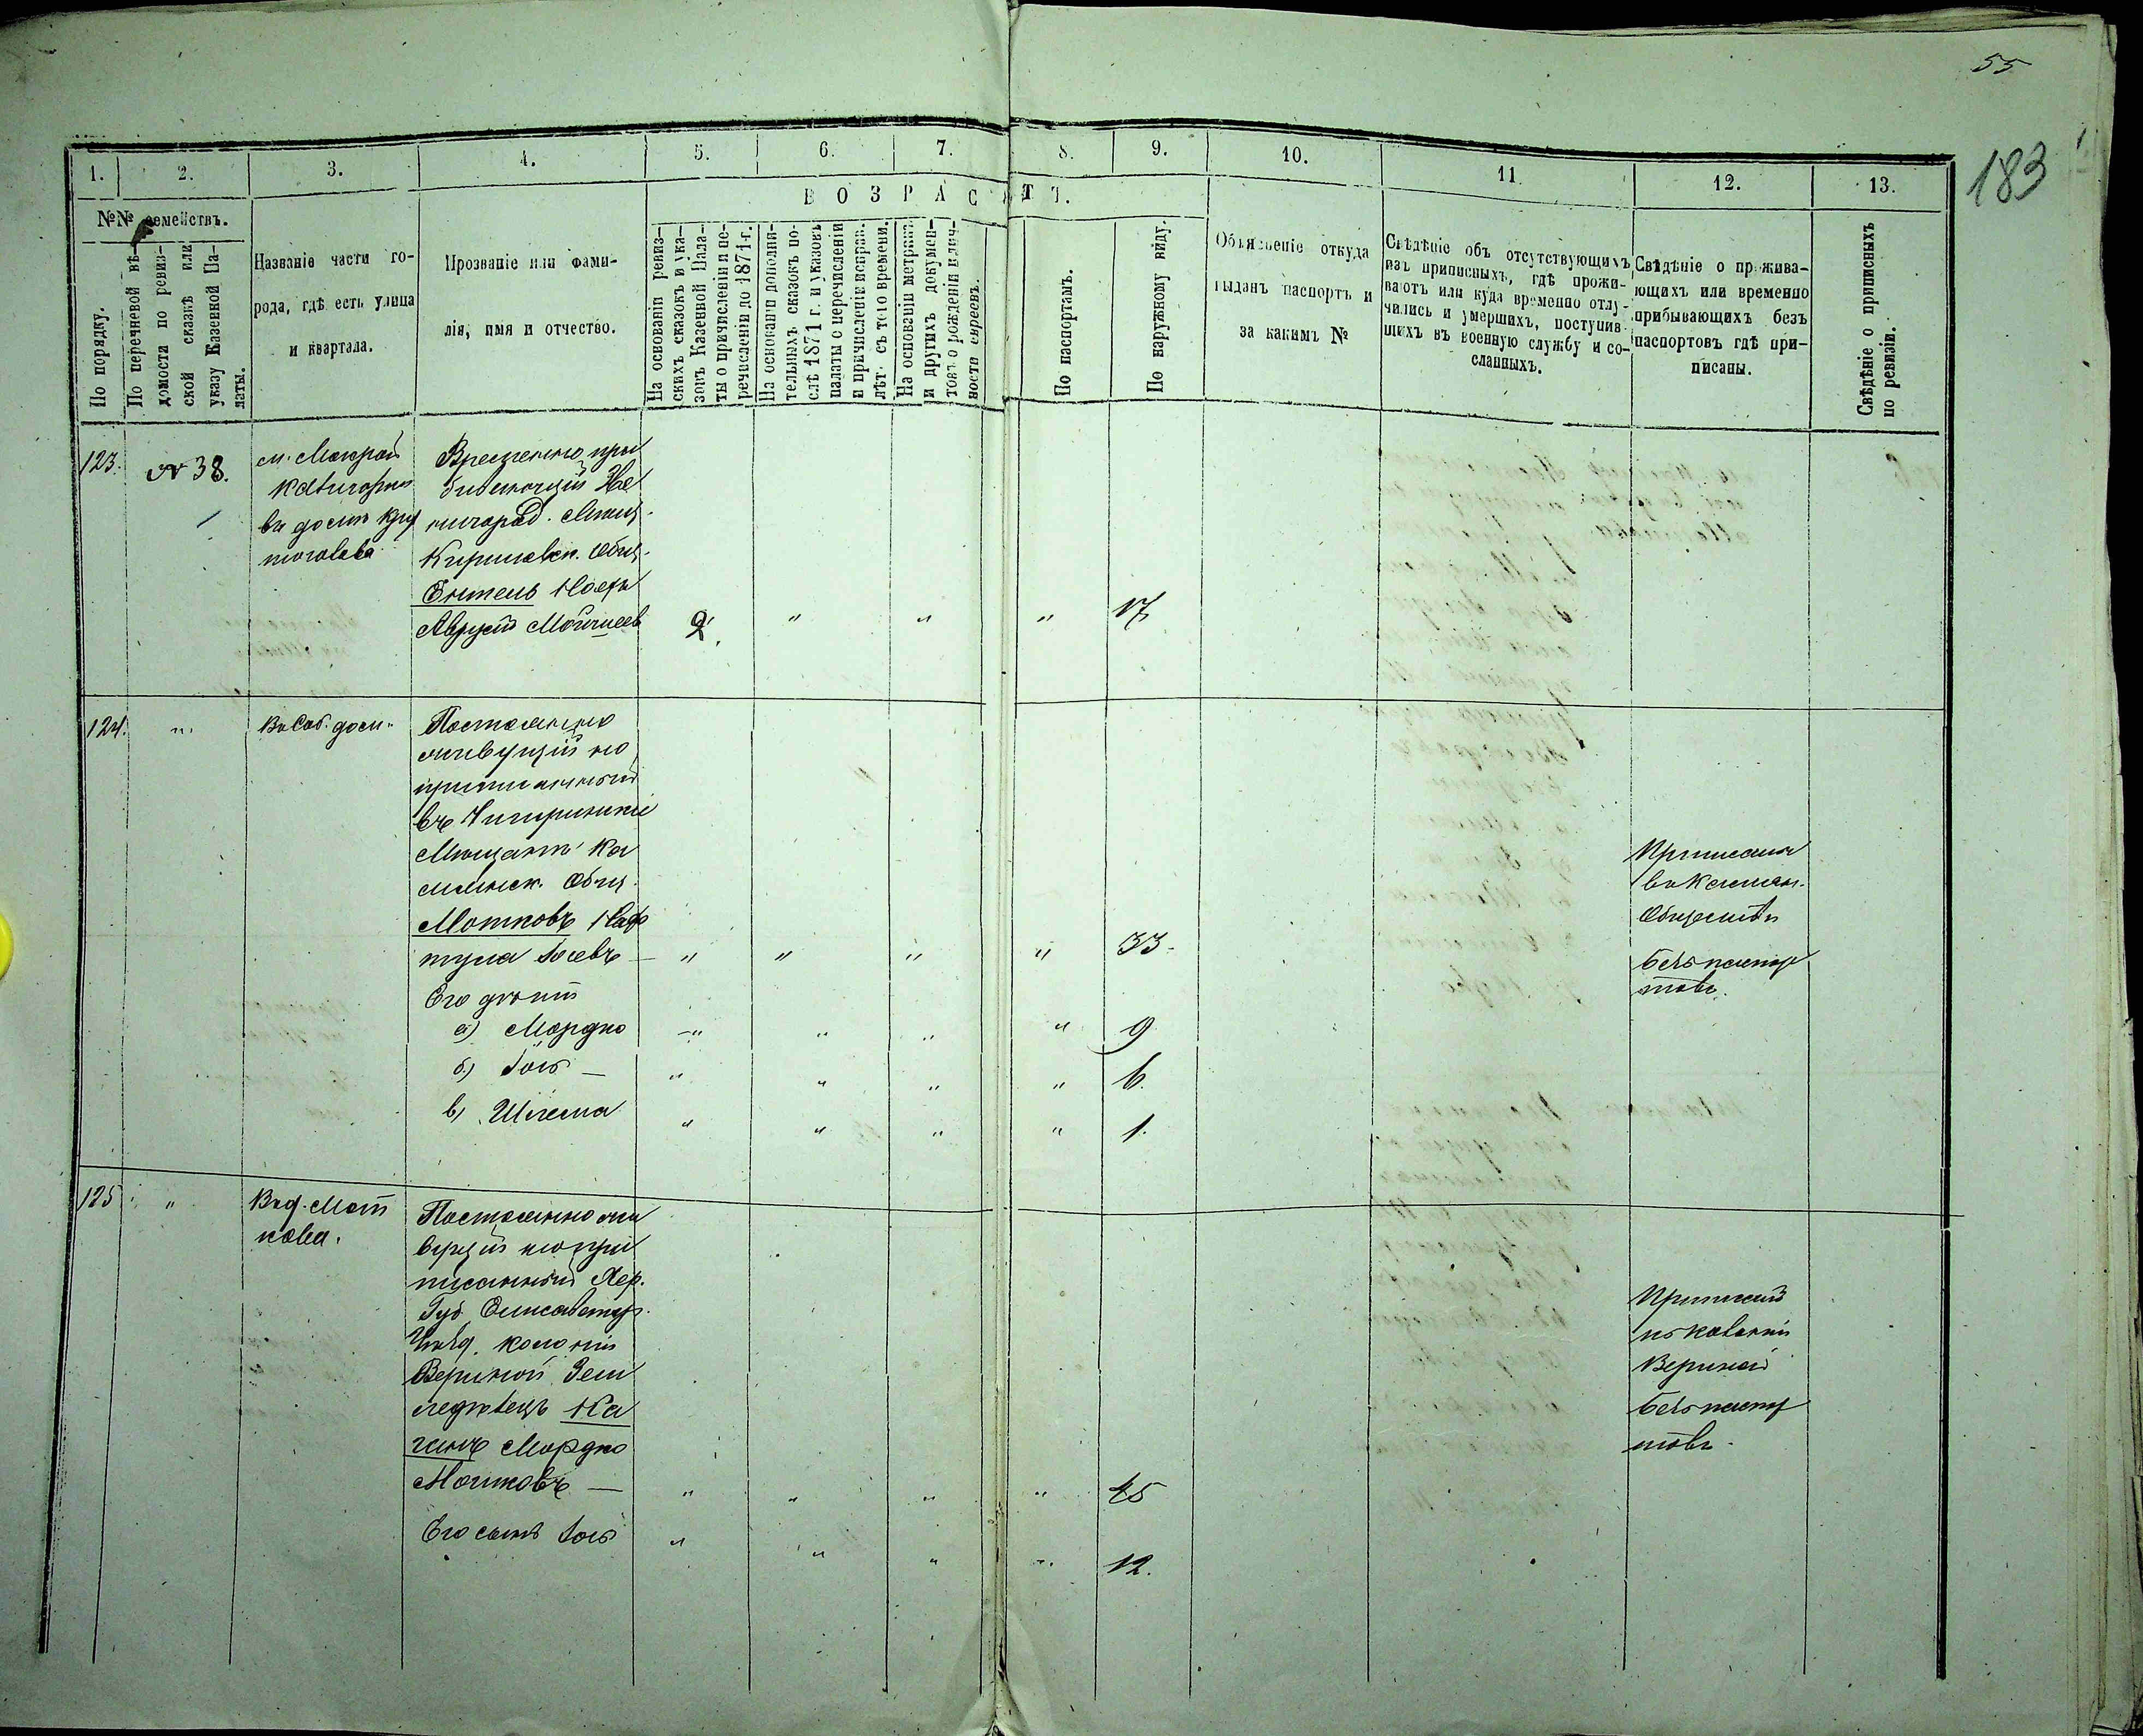 55
183
1.
2.
3.
4.
5.
6.
7.
8.
9.
10.
11.
12.
13.
№№ семействъ.
ВОЗРАСТЪ.
По порядку.
По перечневой вѣ-
домости по ревиз-
ской сказкѣ или
указу Казенной Па-
латы.
Названіе части го-
рода, гдѣ есть улица
и квартала.
Прозваніе или фами-
лія, имя и отчество.
На основаніи ревиз-
скихъ сказокъ и ука-
зовъ Казенной Пала-
ты о причисленіи и пе-
речисленіи до 1871 г.
На основаніи дополни-
тельныхъ сказокъ по-
слѣ 1871 г. и указовъ
палаты о перечисленіи
и причисленіе исправ.
лѣт. съ того времени.
На основаніи метрик.
и другихъ докумен-
товъ о рожденіи
ности евреевъ.
По паспортамъ.
По наружному виду.
Объясненіе откуда
выданъ паспортъ и
за какимъ №
Свѣдѣніе объ отсутствующихъ
изъ приписныхъ, гдѣ прожи-
ваютъ или куда временно отлу-
чились и умершихъ, поступив-
шихъ въ военную службу и со-
сланныхъ.
Свѣдѣніе о прожива-
ющихъ или временно
прибывающихъ безъ
паспортовъ гдѣ при-
писаны.
Свѣдѣніе о приписныхъ
по ревизіи.
123.
№ 38.
м. Мокрой
въ домѣ
Временно при
бывающій Зве
нигород. Мѣщ.
Кириловск. Общ.
Аврумъ Мошков
" " " 17
124.
"
Въ соб. дом.
Постоянно
живущій не
приписанный
въ Чигиринскіе
Мѣщане Ка
менск. Общ.
Мотковъ Наф
тула Іосевъ — " " " " 33.
Его дѣти
а) Мордко " " " " 9
б) Іось — " " " " 6.
в) Шлема " " " " 1.
Приписанъ
въ Каменск.
Обществѣ
безъ паспор
товъ.
125
"
Въ д. Мот
кова.
Постоянно жи
вущій не при
писанный Хер.
Губ. Елисаветгр.
Уѣзд. колоніи
Земл
ледѣлецъ Ка
ганъ Мордко
Мошковъ — " " " " 45
Его сынъ Іось " " " " 12.
Приписанъ
безъ паспор
товъ.